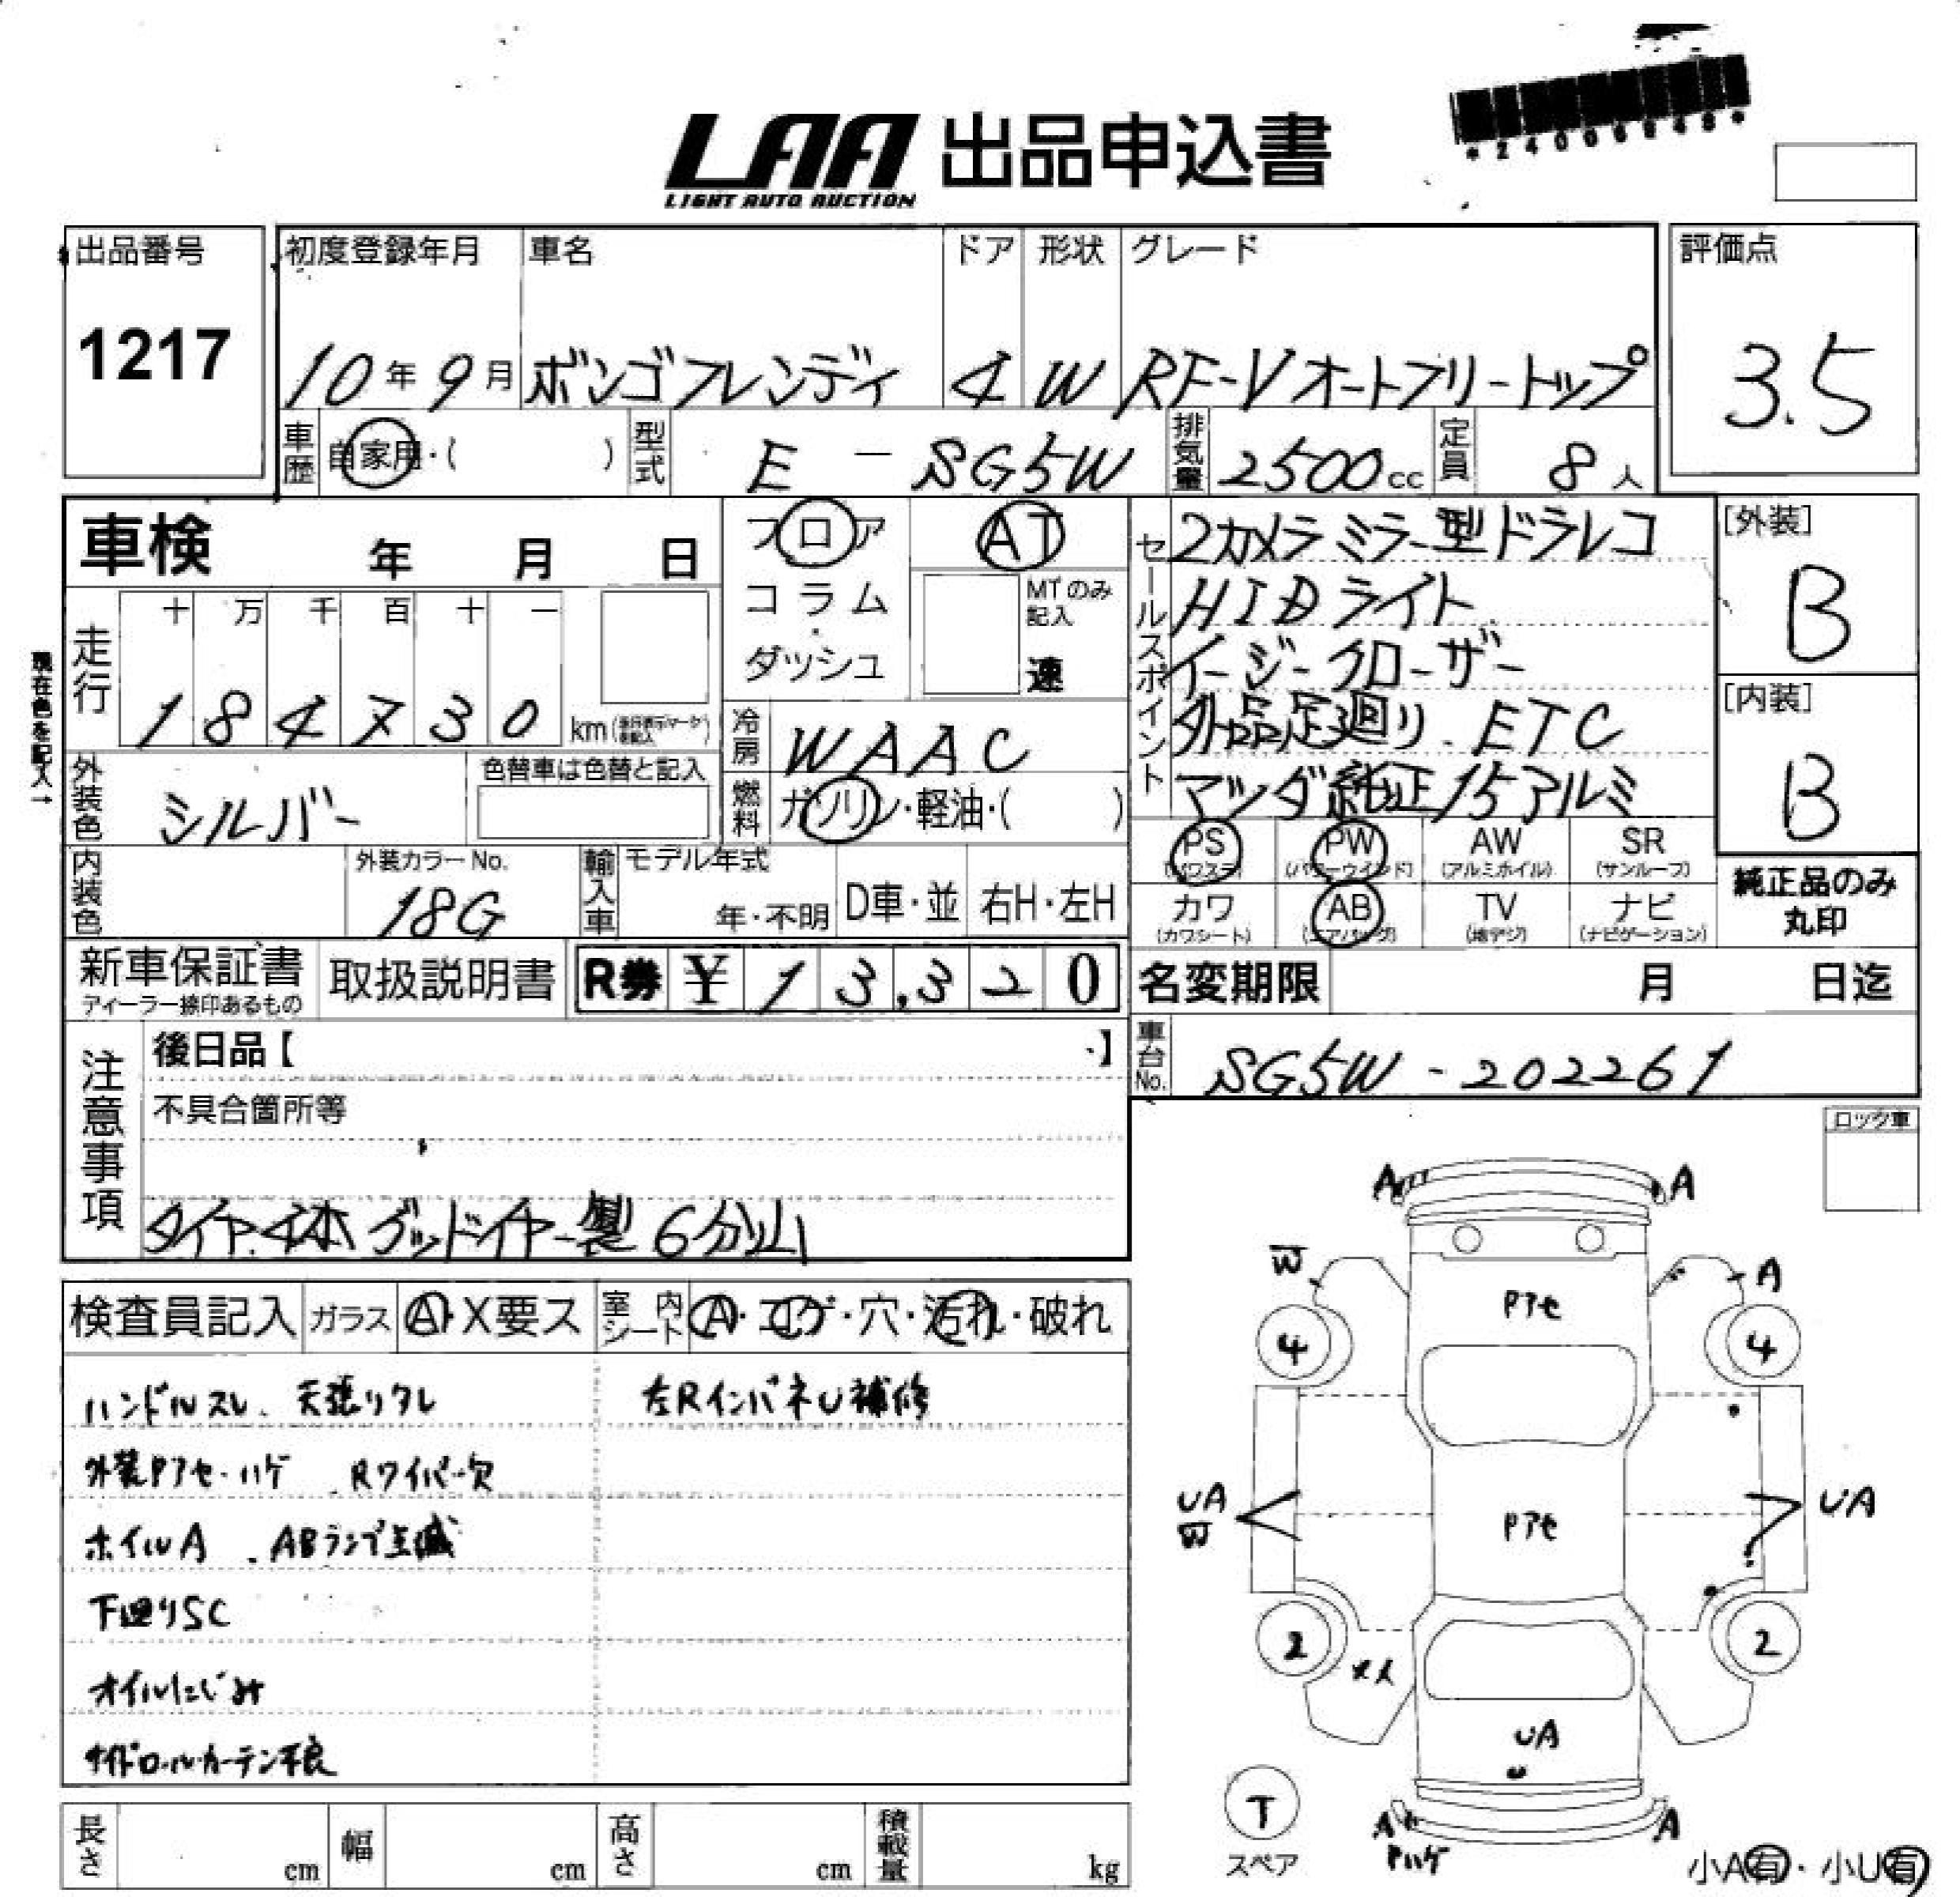 *24006848*
LAA 出品申込書
LIGHT AUTO AUCTION
出品番号 初度登録年月 車名 ドア 形状 グレード 評価点
1217 10年9月 ボンゴフレンディ 4 W RF-Vオートフリートップ 3.5
車歴 自家用・( ) 型式 E - SG5W 排気量 2500cc 定員 8人
車検 年 月 日
フロア
コラム
・
ダッシュ
AT
MTのみ
記入
速
セールスポイント
2カメラミラー型ドラレコ
HIDライト
イージークローザー
外品足廻り、ETC
マツダ純正15アルミ
[外装]
B
[内装]
B
現在色を記入→
走行 十 万 千 百 十 一
184730 km
冷房 WAAC
燃料 ガソリン・軽油・( )
外装色 シルバー 色替車は色替と記入
内装色 外装カラーNo. 18G 輸入車 モデル年式 年・不明 D車・並 右H・左H
PS (パワステ) PW (パワーウインド) AW (アルミホイル) SR (サンルーフ)
カワ (カワシート) AB (エアバッグ) TV (地デジ) ナビ (ナビゲーション)
純正品のみ
丸印
新車保証書 取扱説明書 R券 ¥13,320
ディーラー捺印あるもの
名変期限 月 日迄
車台No. SG5W-202261
注意事項
後日品【 】
不具合箇所等
タイヤ、4本グッドイヤー製6分山
ロック車
検査員記入 ガラス A・X要ス 室内シート A・コゲ・穴・汚れ・破れ
ハンドルスレ、天張りタレ
外装Pアセ・ハゲ、Rワイパー欠
ホイルA、ABランプ点滅
下回りSC
オイルにじみ
サイドロールカーテン不良
左RインパネU補修
A A
W A
Pアセ
4 4
UA
W
Pアセ
UA
2 2
メス
UA
U
T
スペア
A A
Pハゲ
小A有・小U有
長さ cm 幅 cm 高さ cm 積載量 kg